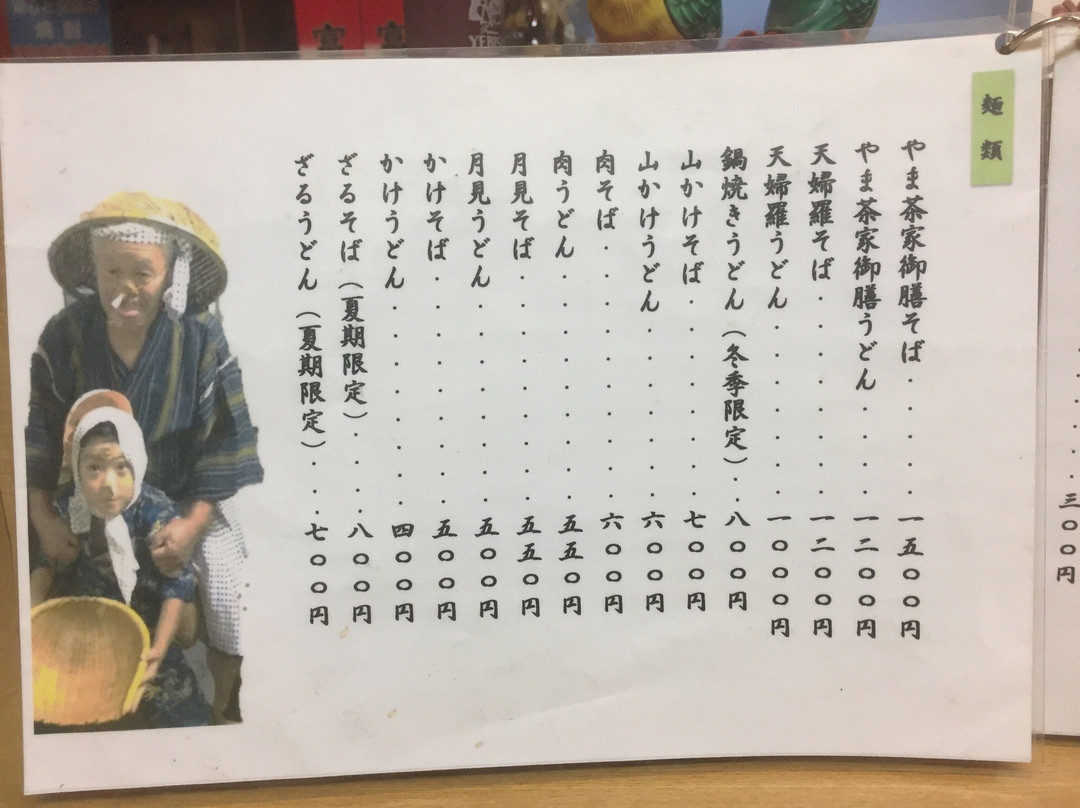 麺類
やま茶家御膳そば・・・・・一五〇〇円
やま茶家御膳うどん・・・・一二〇〇円
天婦羅そば・・・・・・・・一二〇〇円
天婦羅うどん・・・・・・・一〇〇〇円
鍋焼きうどん（冬季限定）・・八〇〇円
山かけそば・・・・・・・・七〇〇円
山かけうどん・・・・・・・六〇〇円
肉そば・・・・・・・・・・六〇〇円
肉うどん・・・・・・・・・五五〇円
月見そば・・・・・・・・・五五〇円
月見うどん・・・・・・・・五〇〇円
かけそば・・・・・・・・・五〇〇円
かけうどん・・・・・・・・四〇〇円
ざるそば（夏期限定）・・・八〇〇円
ざるうどん（夏期限定）・・七〇〇円
三〇〇円